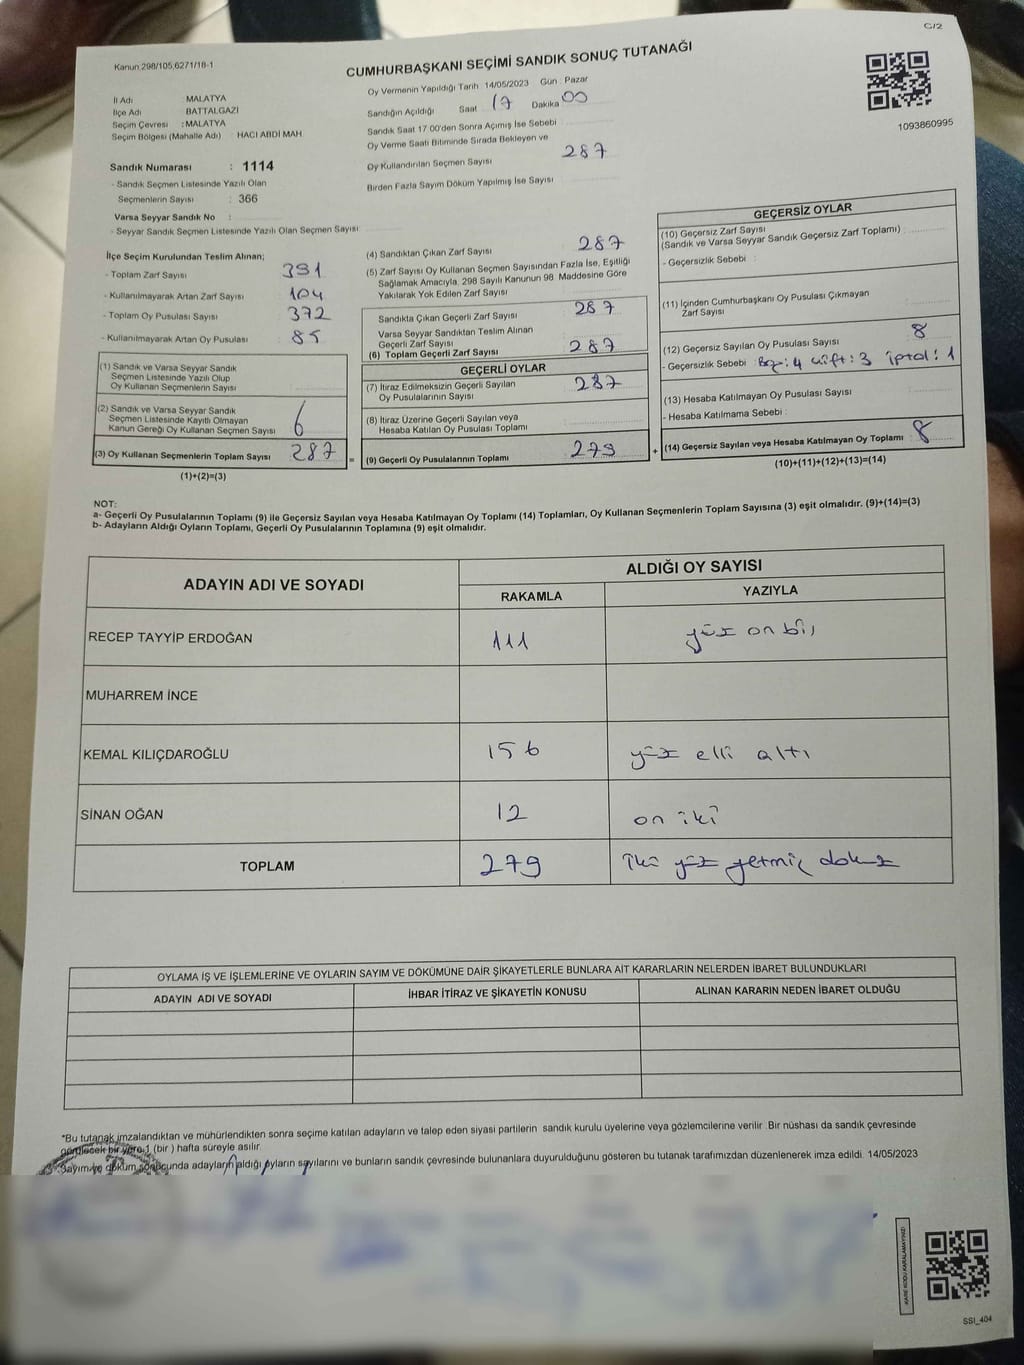 C/2
Kanun 298/105,6271/18-1
CUMHURBAŞKANI SEÇİMİ SANDIK SONUÇ TUTANAĞI
1093860995
İl Adı MALATYA
İlçe Adı BATTALGAZİ
Seçim Çevresi : MALATYA
Seçim Bölgesi (Mahalle Adı) : HACI ABDİ MAH.
Sandık Numarası : 1114
- Sandık Seçmen Listesinde Yazılı Olan
Seçmenlerin Sayısı : 366
Varsa Seyyar Sandık No :
- Seyyar Sandık Seçmen Listesinde Yazılı Olan Seçmen Sayısı:
Oy Vermenin Yapıldığı Tarih 14/05/2023 Gün : Pazar
Sandığın Açıldığı Saat 17 Dakika 00
Sandık Saat 17.00'den Sonra Açımış İse Sebebi
Oy Verme Saati Bitiminde Sırada Bekleyen ve
Oy Kullandırılan Seçmen Sayısı 287
Birden Fazla Sayım Döküm Yapılmış İse Sayısı
İlçe Seçim Kurulundan Teslim Alınan;
- Toplam Zarf Sayısı 391
- Kullanılmayarak Artan Zarf Sayısı 104
- Toplam Oy Pusulası Sayısı 372
- Kullanılmayarak Artan Oy Pusulası 85
(1) Sandık ve Varsa Seyyar Sandık
Seçmen Listesinde Yazılı Olup
Oy Kullanan Seçmenlerin Sayısı
(2) Sandık ve Varsa Seyyar Sandık
Seçmen Listesinde Kayıtlı Olmayan
Kanun Gereği Oy Kullanan Seçmen Sayısı 6
(3) Oy Kullanan Seçmenlerin Toplam Sayısı 287 =
(1)+(2)=(3)
(4) Sandıktan Çıkan Zarf Sayısı 287
(5) Zarf Sayısı Oy Kullanan Seçmen Sayısından Fazla İse, Eşitliği
Sağlamak Amacıyla, 298 Sayılı Kanunun 98. Maddesine Göre
Yakılarak Yok Edilen Zarf Sayısı
Sandıkta Çıkan Geçerli Zarf Sayısı 287
Varsa Seyyar Sandıktan Teslim Alınan
Geçerli Zarf Sayısı
(6) Toplam Geçerli Zarf Sayısı 287
GEÇERLİ OYLAR
(7) İtiraz Edilmeksizin Geçerli Sayılan
Oy Pusulalarının Sayısı 287
(8) İtiraz Üzerine Geçerli Sayılan veya
Hesaba Katılan Oy Pusulası Toplamı
(9) Geçerli Oy Pusulalarının Toplamı 279 +
GEÇERSİZ OYLAR
(10) Geçersiz Zarf Sayısı
(Sandık ve Varsa Seyyar Sandık Geçersiz Zarf Toplamı) :
- Geçersizlik Sebebi :
(11) İçinden Cumhurbaşkanı Oy Pusulası Çıkmayan
Zarf Sayısı
(12) Geçersiz Sayılan Oy Pusulası Sayısı 8
- Geçersizlik Sebebi : 4 çift: 3 iptal: 1
(13) Hesaba Katılmayan Oy Pusulası Sayısı
- Hesaba Katılmama Sebebi :
(14) Geçersiz Sayılan veya Hesaba Katılmayan Oy Toplamı : 8
(10)+(11)+(12)+(13)=(14)
NOT:
a- Geçerli Oy Pusulalarının Toplamı (9) ile Geçersiz Sayılan veya Hesaba Katılmayan Oy Toplamı (14) Toplamları, Oy Kullanan Seçmenlerin Toplam Sayısına (3) eşit olmalıdır. (9)+(14)=(3)
b- Adayların Aldığı Oyların Toplamı, Geçerli Oy Pusulalarının Toplamına (9) eşit olmalıdır.
ADAYIN ADI VE SOYADI ALDIĞI OY SAYISI
RAKAMLA YAZIYLA
RECEP TAYYİP ERDOĞAN 111 yüz on bir
MUHARREM İNCE
KEMAL KILIÇDAROĞLU 156 yüz elli altı
SİNAN OĞAN 12 on iki
TOPLAM 279 iki yüz yetmiş dokuz
OYLAMA İŞ VE İŞLEMLERİNE VE OYLARIN SAYIM VE DÖKÜMÜNE DAİR ŞİKAYETLERLE BUNLARA AİT KARARLARIN NELERDEN İBARET BULUNDUKLARI
ADAYIN ADI VE SOYADI İHBAR İTİRAZ VE ŞİKAYETİN KONUSU ALINAN KARARIN NEDEN İBARET OLDUĞU
*Bu tutanak imzalandıktan ve mühürlendikten sonra seçime katılan adayların ve talep eden siyasi partilerin sandık kurulu üyelerine veya gözlemcilerine verilir. Bir nüshası da sandık çevresinde
görülecek bir yere 1 (bir ) hafta süreyle asılır.
Sayım ve döküm sonucunda adayların aldığı oyların sayılarını ve bunların sandık çevresinde bulunanlara duyurulduğunu gösteren bu tutanak tarafımızdan düzenlenerek imza edildi. 14/05/2023
KARE KODU KARALAMAYINIZ!
SSI_404